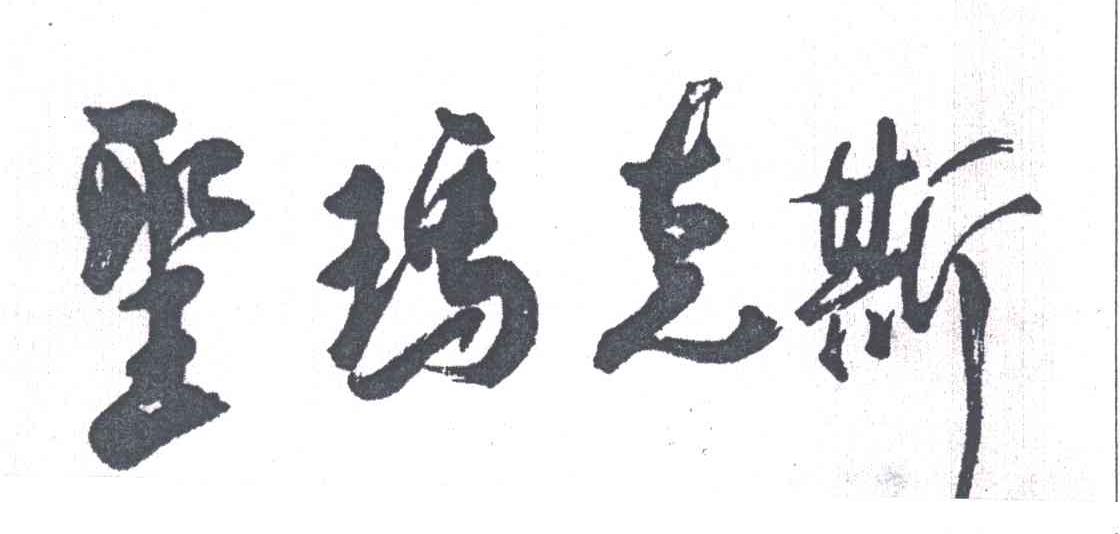 聖瑪克斯